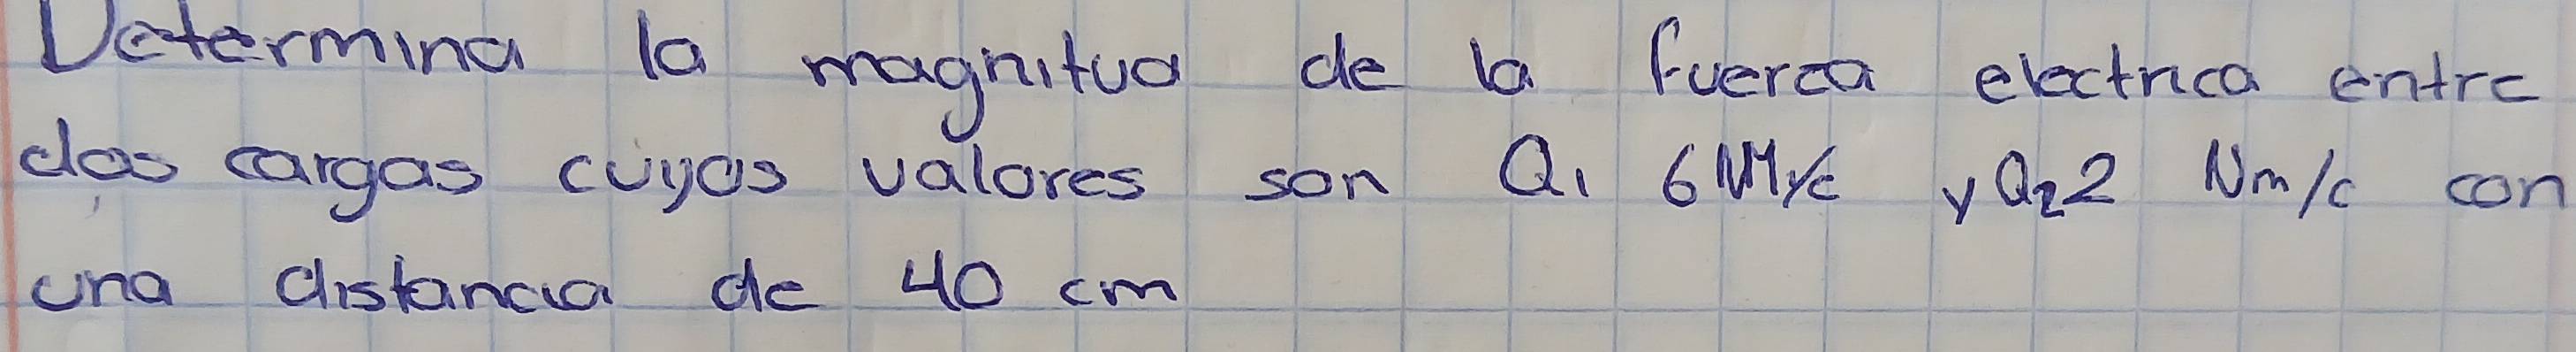 Determina la magnitud de la fuerza electrica entre
dos cargas cuyos valores son Q1 6 NM/c y Q2 2 Nm/c con
una distancia de 40 cm